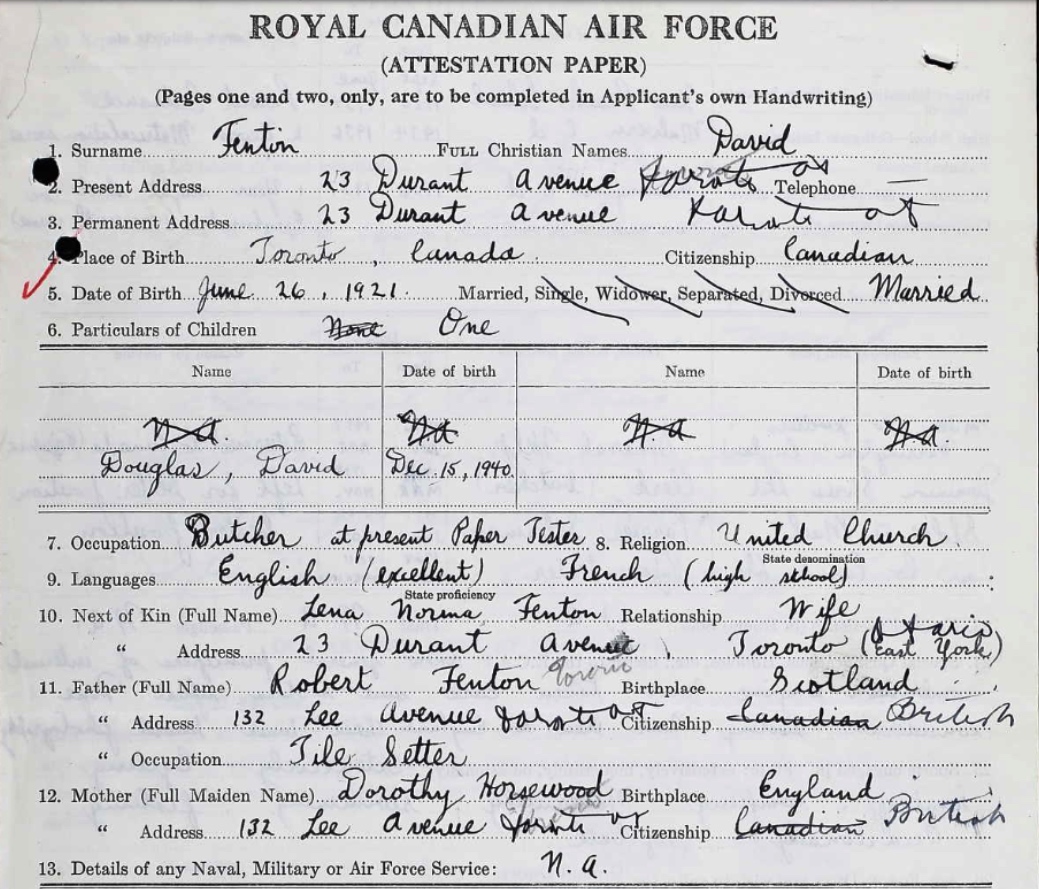 ROYAL CANADIAN AIR FORCE
(ATTESTATION PAPER)
(Pages one and two, only, are to be completed in Applicant's own Handwriting)
1. Surname Fenton FULL Christian Names David
2. Present Address 23 Durant Avenue Toronto Ont Telephone —
3. Permanent Address 23 Durant Avenue Toronto Ont
4. Place of Birth Toronto, Canada Citizenship Canadian
5. Date of Birth June 26, 1921. Married, Single, Widower, Separated, Divorced Married
6. Particulars of Children None One
Name Date of birth Name Date of birth
N.a. N.a. N.a. N.a.
Douglas, David Dec. 15, 1940.
7. Occupation Butcher at present Paper Tester 8. Religion United Church
State denomination
9. Languages English (excellent) French (high school)
State proficiency
10. Next of Kin (Full Name) Lena Norma Fenton Relationship Wife
" Address 23 Durant Avenue, Toronto (East York) Ontario
11. Father (Full Name) Robert Fenton Birthplace Scotland
" Address 132 Lee Avenue Toronto Ont Citizenship Canadian British
" Occupation Tile Setter
12. Mother (Full Maiden Name) Dorothy Horsewood Birthplace England
" Address 132 Lee Avenue Toronto Ont Citizenship Canadian British
13. Details of any Naval, Military or Air Force Service: N.a.